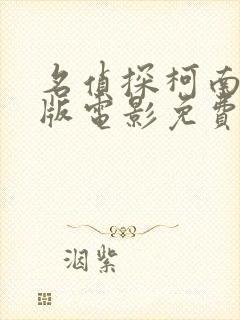 名偵探柯南
版電影免費
洇紫